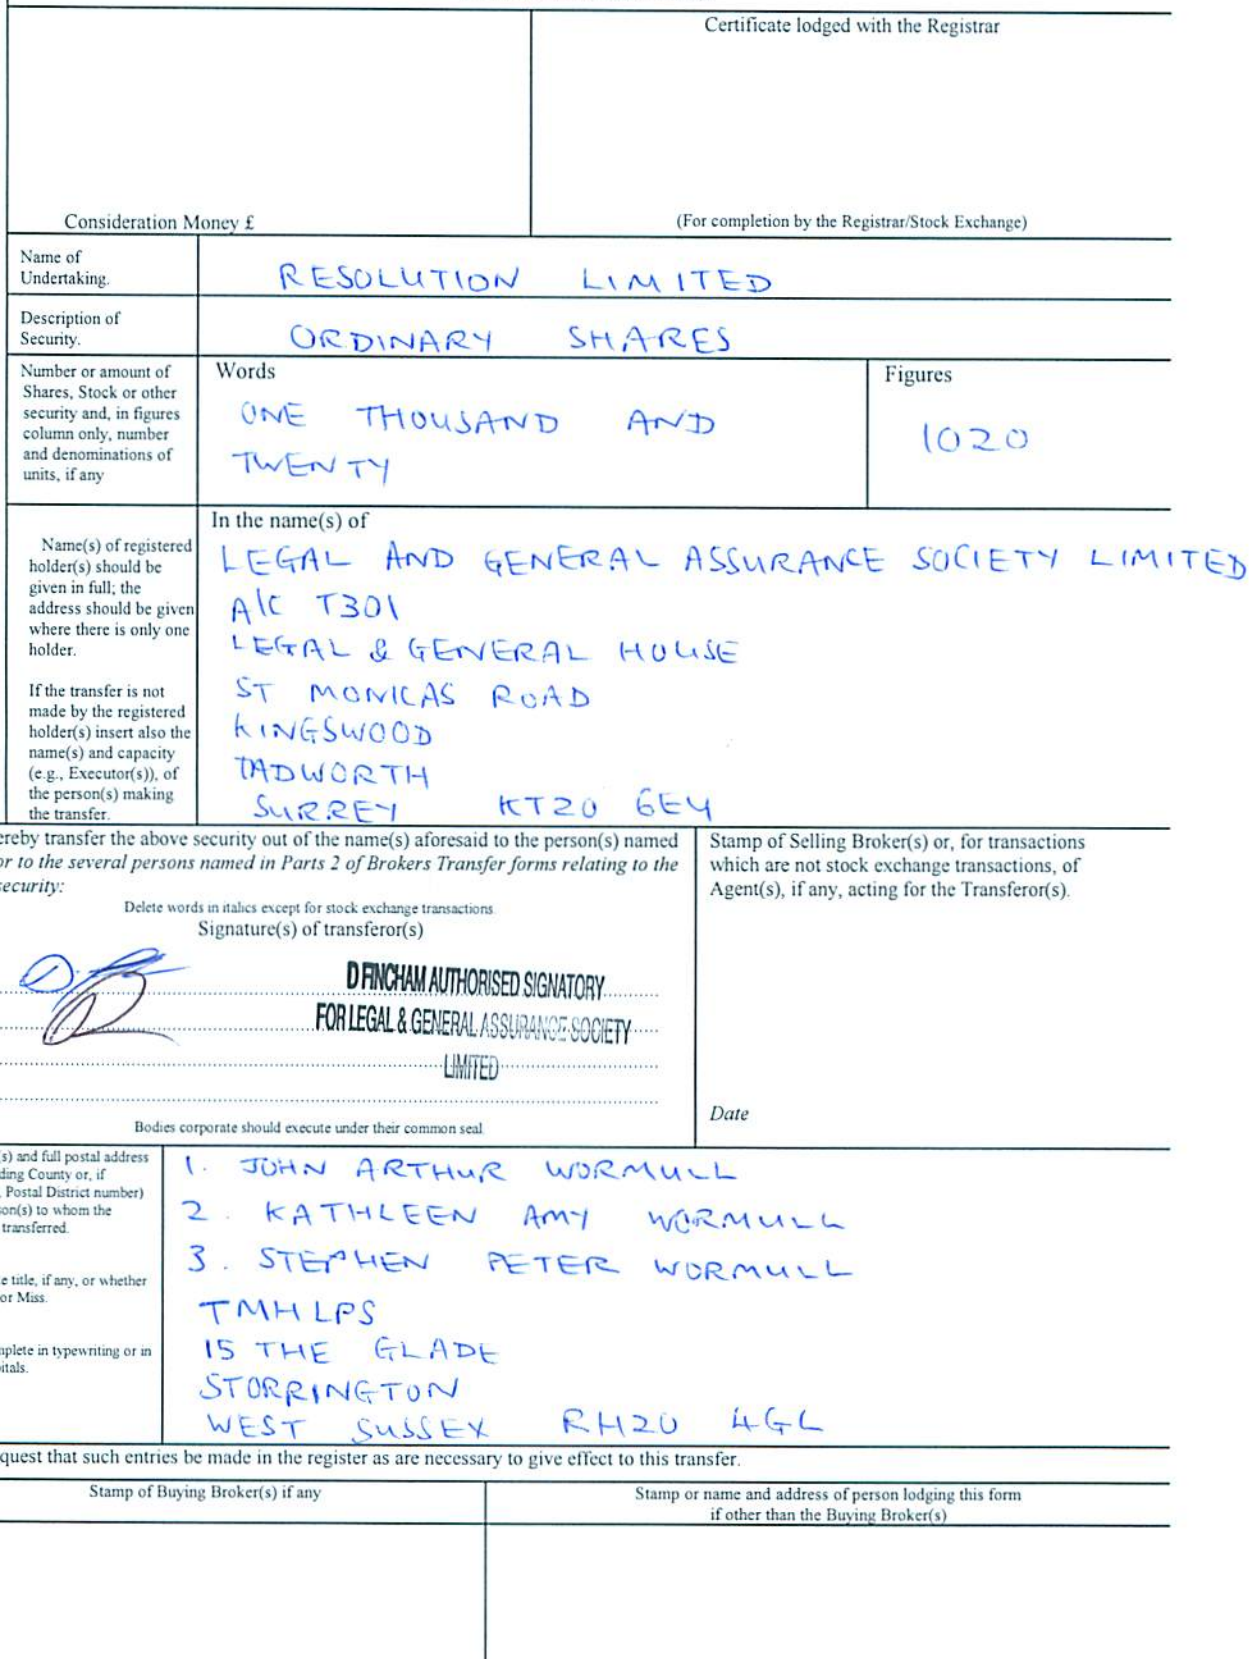 Certificate lodged with the Registrar
Consideration Money £
(For completion by the Registrar/Stock Exchange)
Name of
Undertaking.
RESOLUTION LIMITED
Description of
Security.
ORDINARY SHARES
Number or amount of
Shares, Stock or other
security and, in figures
column only, number
and denominations of
units, if any
Words
ONE THOUSAND AND
TWENTY
Figures
1020
Name(s) of registered
holder(s) should be
given in full; the
address should be given
where there is only one
holder.
If the transfer is not
made by the registered
holder(s) insert also the
name(s) and capacity
(e.g., Executor(s)), of
the person(s) making
the transfer.
In the name(s) of
LEGAL AND GENERAL ASSURANCE SOCIETY LIMITED
A/C T301
LEGAL & GENERAL HOUSE
ST MONICAS ROAD
KINGSWOOD
TADWORTH
SURREY KT20 6EY
ereby transfer the above security out of the name(s) aforesaid to the person(s) named
or to the several persons named in Parts 2 of Brokers Transfer forms relating to the
security:
Delete words in italics except for stock exchange transactions.
Signature(s) of transferor(s)
D FINCHAM AUTHORISED SIGNATORY
FOR LEGAL & GENERAL ASSURANCE SOCIETY
LIMITED
Bodies corporate should execute under their common seal.
Stamp of Selling Broker(s) or, for transactions
which are not stock exchange transactions, of
Agent(s), if any, acting for the Transferor(s).
Date
s) and full postal address
ding County or, if
, Postal District number)
son(s) to whom the
transferred.
e title, if any, or whether
or Miss.
mplete in typewriting or in
itals.
1. JOHN ARTHUR WORMULL
2. KATHLEEN AMY WORMULL
3. STEPHEN PETER WORMULL
TMHLPS
15 THE GLADE
STORRINGTON
WEST SUSSEX RH20 4GL
quest that such entries be made in the register as are necessary to give effect to this transfer.
Stamp of Buying Broker(s) if any
Stamp or name and address of person lodging this form
if other than the Buying Broker(s)